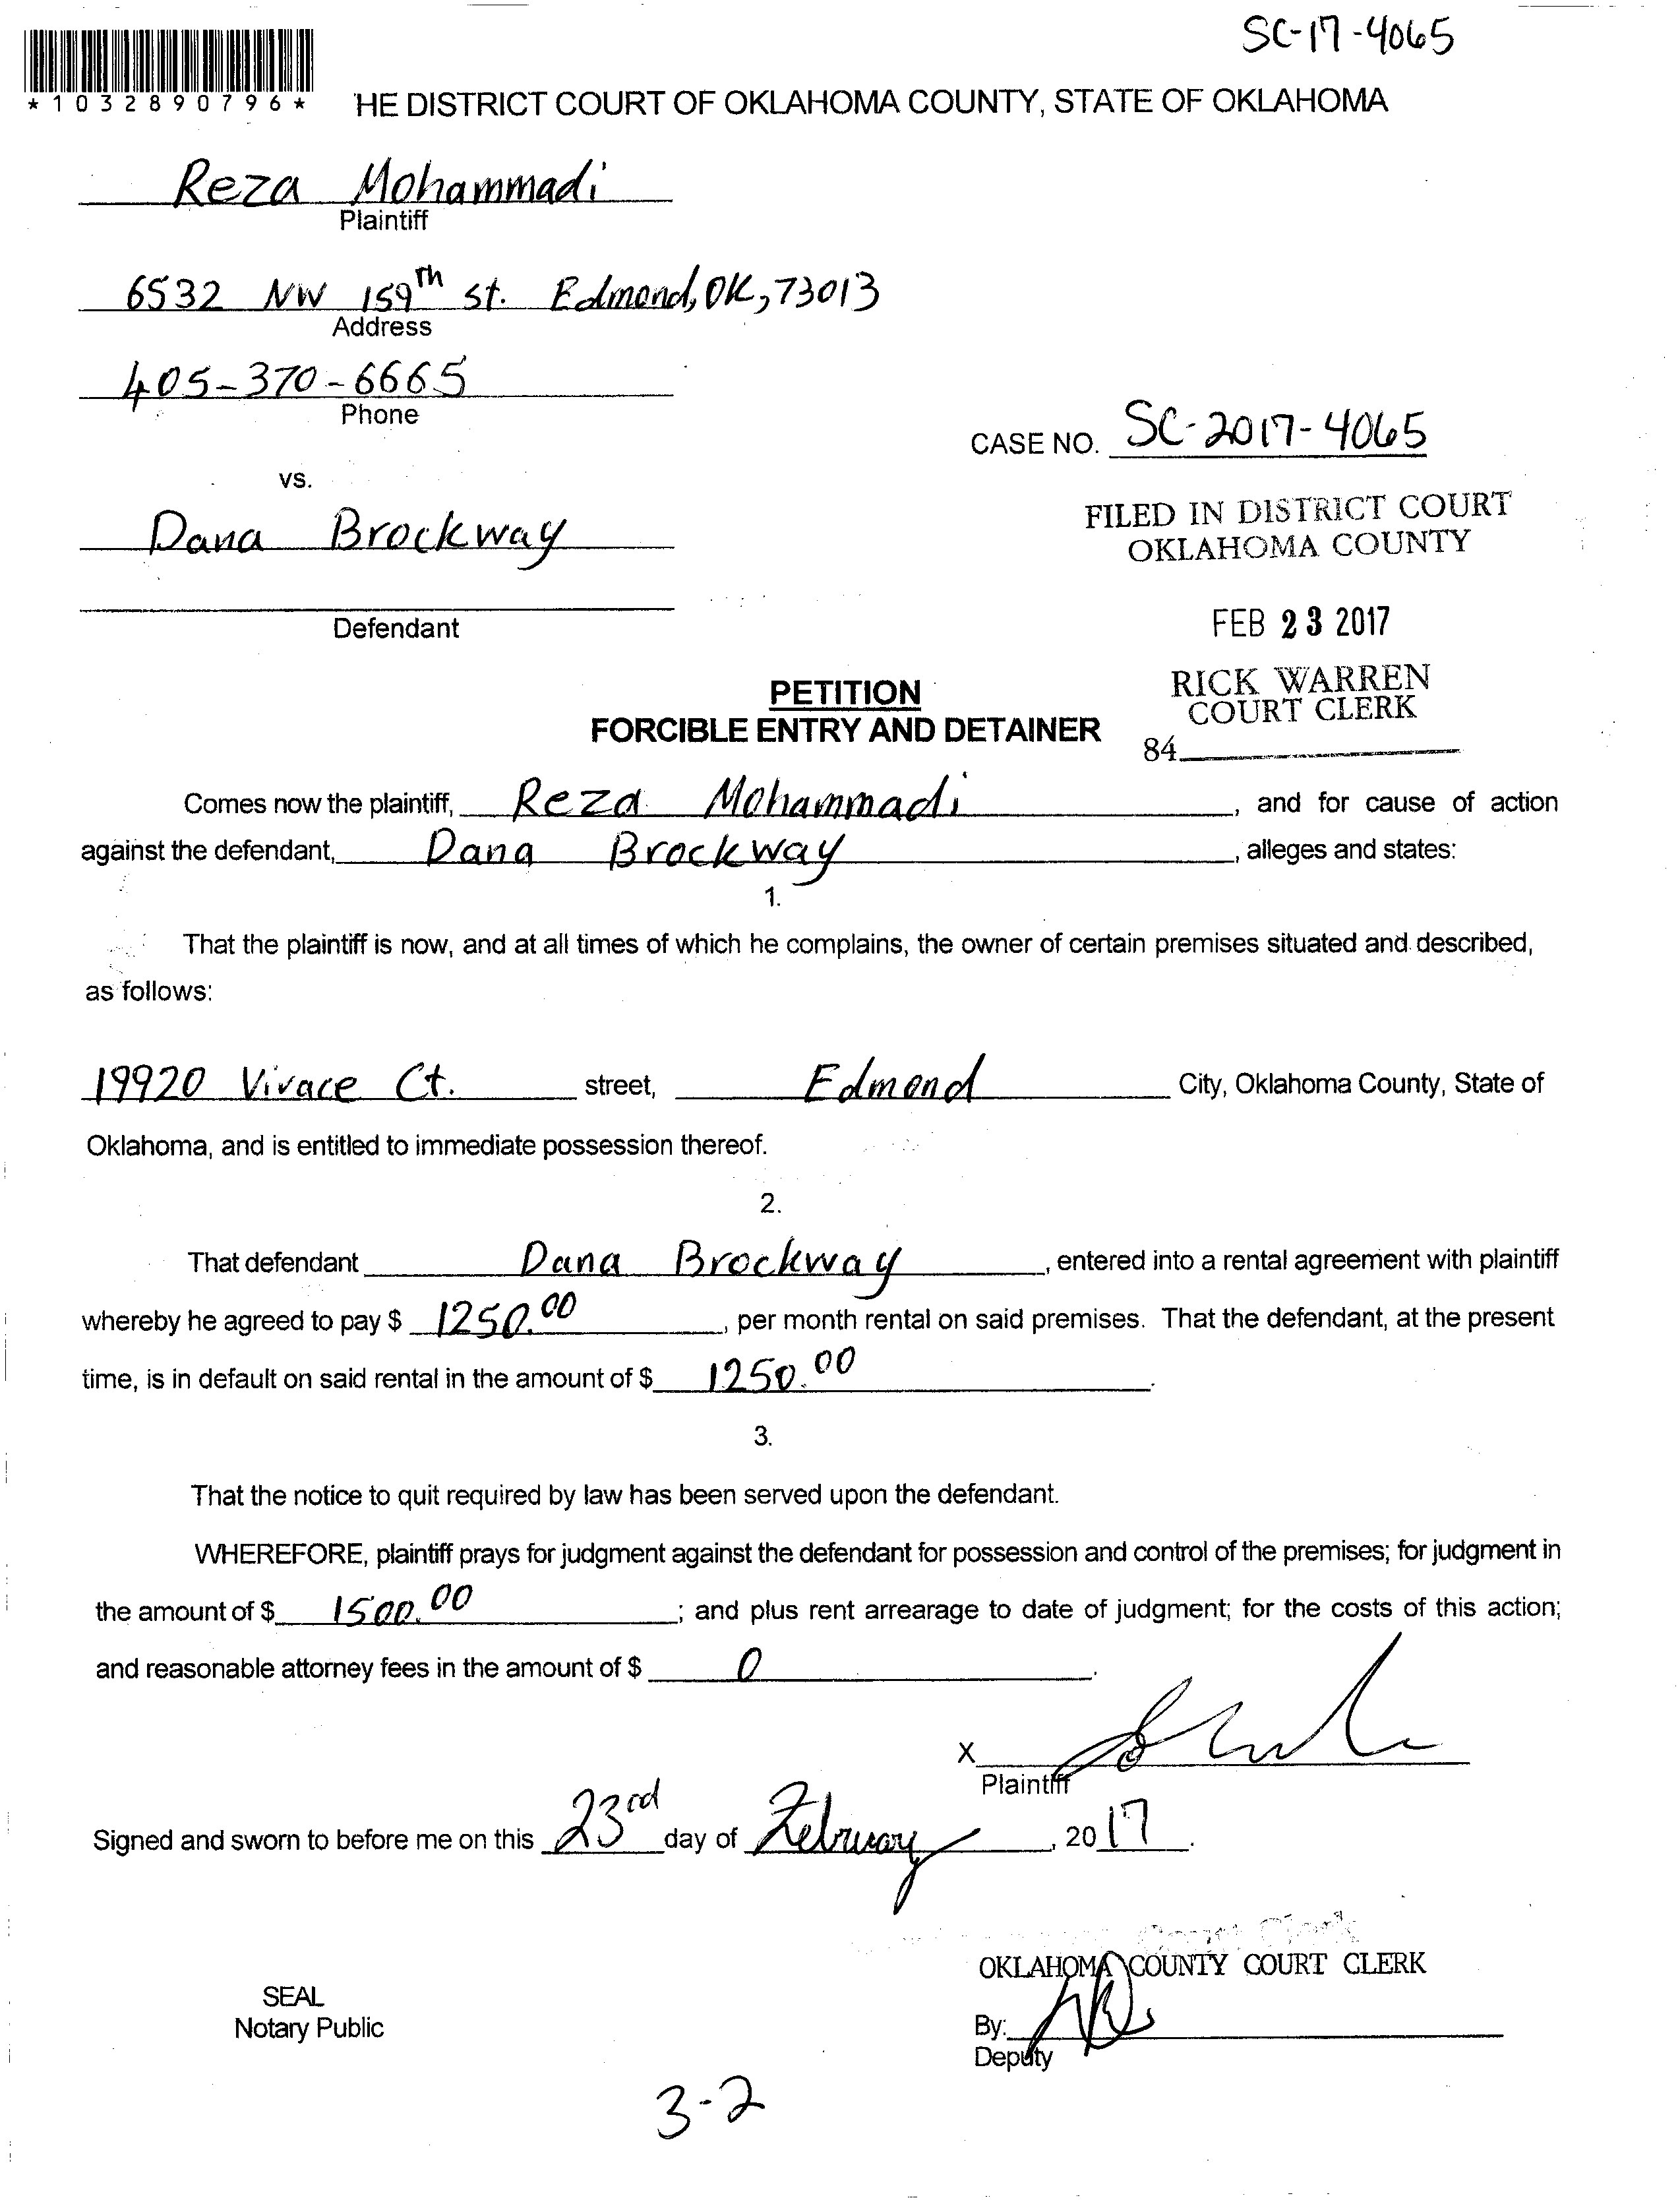 SC-17-4065
*1032890796*
HE DISTRICT COURT OF OKLAHOMA COUNTY, STATE OF OKLAHOMA
Reza Mohammadi
Plaintiff
6532 NW 159th St. Edmond, OK, 73013
Address
405-370-6665
Phone
CASE NO. SC-2017-4065
vs.
Dana Brockway
Defendant
FILED IN DISTRICT COURT
OKLAHOMA COUNTY
FEB 23 2017
RICK WARREN
COURT CLERK
84
PETITION
FORCIBLE ENTRY AND DETAINER
Comes now the plaintiff, Reza Mohammadi, and for cause of action
against the defendant, Dana Brockway, alleges and states:
1.
That the plaintiff is now, and at all times of which he complains, the owner of certain premises situated and described,
as follows:
19920 Vivace Ct. street, Edmond City, Oklahoma County, State of
Oklahoma, and is entitled to immediate possession thereof.
2.
That defendant Dana Brockway, entered into a rental agreement with plaintiff
whereby he agreed to pay $ 1250.00, per month rental on said premises. That the defendant, at the present
time, is in default on said rental in the amount of $ 1250.00.
3.
That the notice to quit required by law has been served upon the defendant.
WHEREFORE, plaintiff prays for judgment against the defendant for possession and control of the premises; for judgment in
the amount of $ 1500.00; and plus rent arrearage to date of judgment; for the costs of this action;
and reasonable attorney fees in the amount of $ 0.
X
Plaintiff
Signed and sworn to before me on this 23rd day of February, 2017.
Court Clerk
OKLAHOMA COUNTY COURT CLERK
SEAL
Notary Public
By:
Deputy
3-2